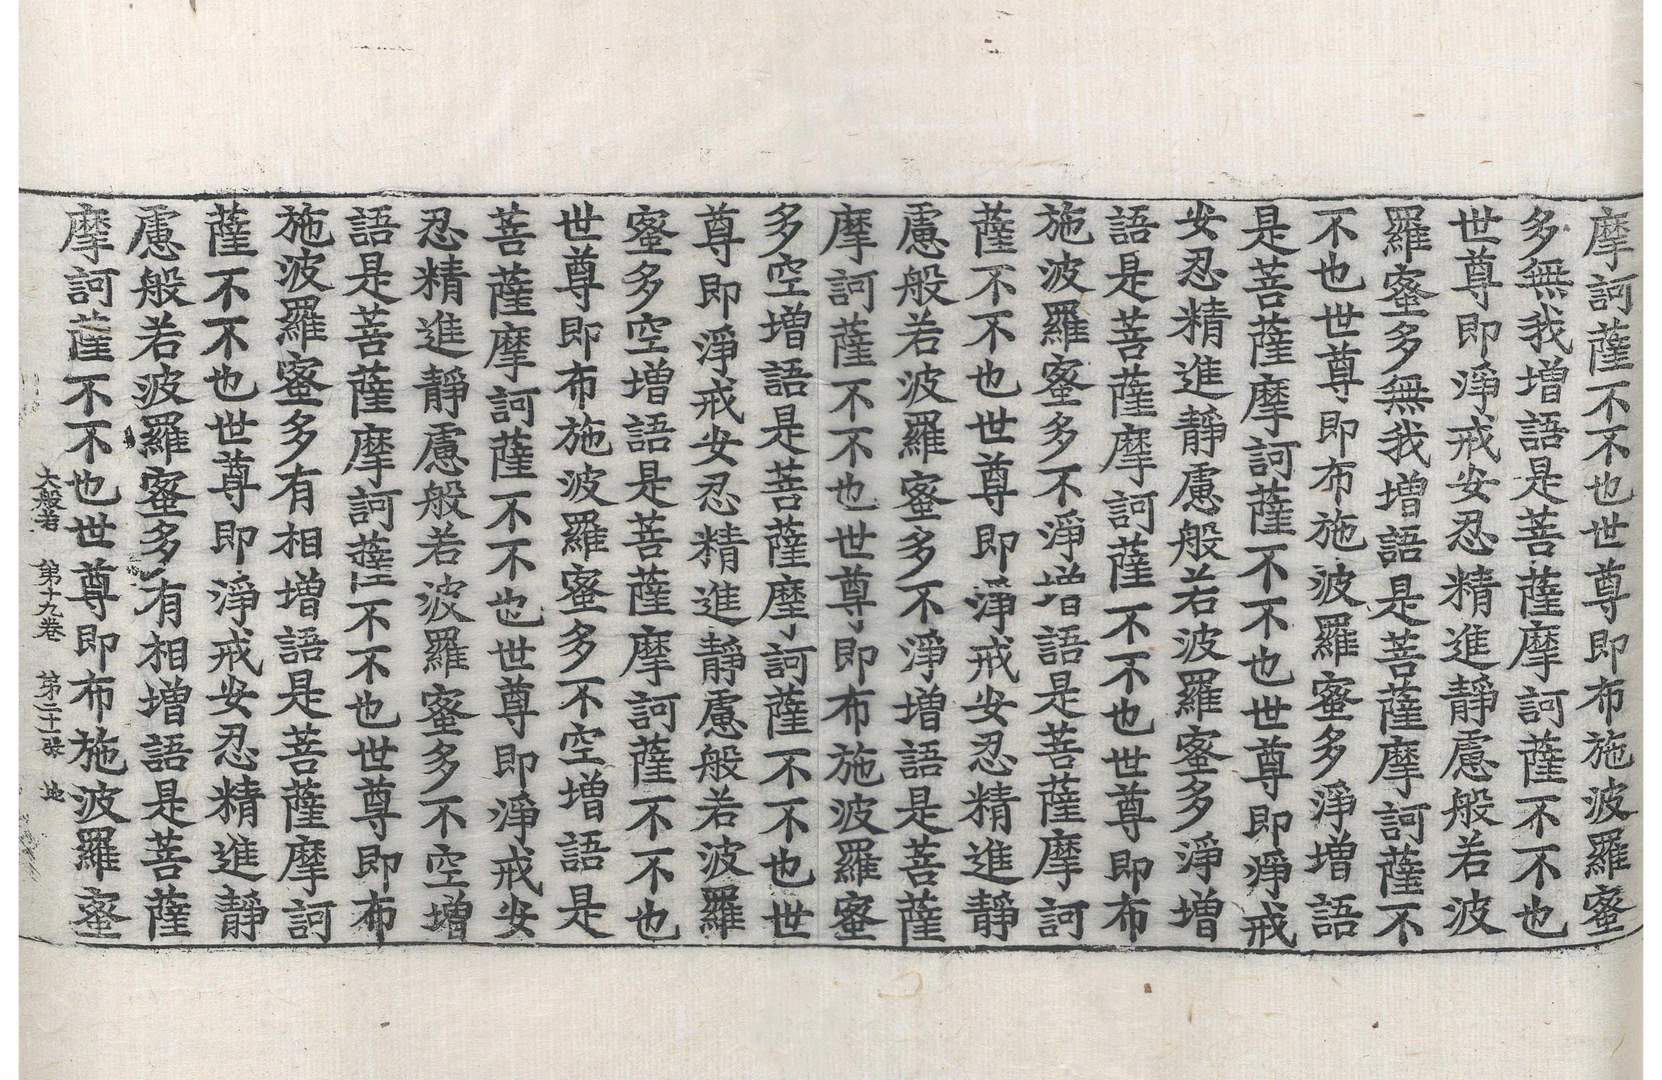 摩訶薩不不也世尊即布施波羅蜜
多無我增語是菩薩摩訶薩不不也
世尊即淨戒安忍精進靜慮般若波
羅蜜多無我增語是菩薩摩訶薩不
不也世尊即布施波羅蜜多淨增語
是菩薩摩訶薩不不也世尊即淨戒
安忍精進靜慮般若波羅蜜多淨增
語是菩薩摩訶薩不不也世尊即布
施波羅蜜多不淨增語是菩薩摩訶
薩不不也世尊即淨戒安忍精進靜
慮般若波羅蜜多不淨增語是菩薩
摩訶薩不不也世尊即布施波羅蜜
多空增語是菩薩摩訶薩不不也世
尊即淨戒安忍精進靜慮般若波羅
蜜多空增語是菩薩摩訶薩不不也
世尊即布施波羅蜜多不空增語是
菩薩摩訶薩不不也世尊即淨戒安
忍精進靜慮般若波羅蜜多不空增
語是菩薩摩訶薩不不也世尊即布
施波羅蜜多有相增語是菩薩摩訶
薩不不也世尊即淨戒安忍精進靜
慮般若波羅蜜多有相增語是菩薩
摩訶薩不不也世尊即布施波羅蜜
大般若 第十九卷 第二十張 地